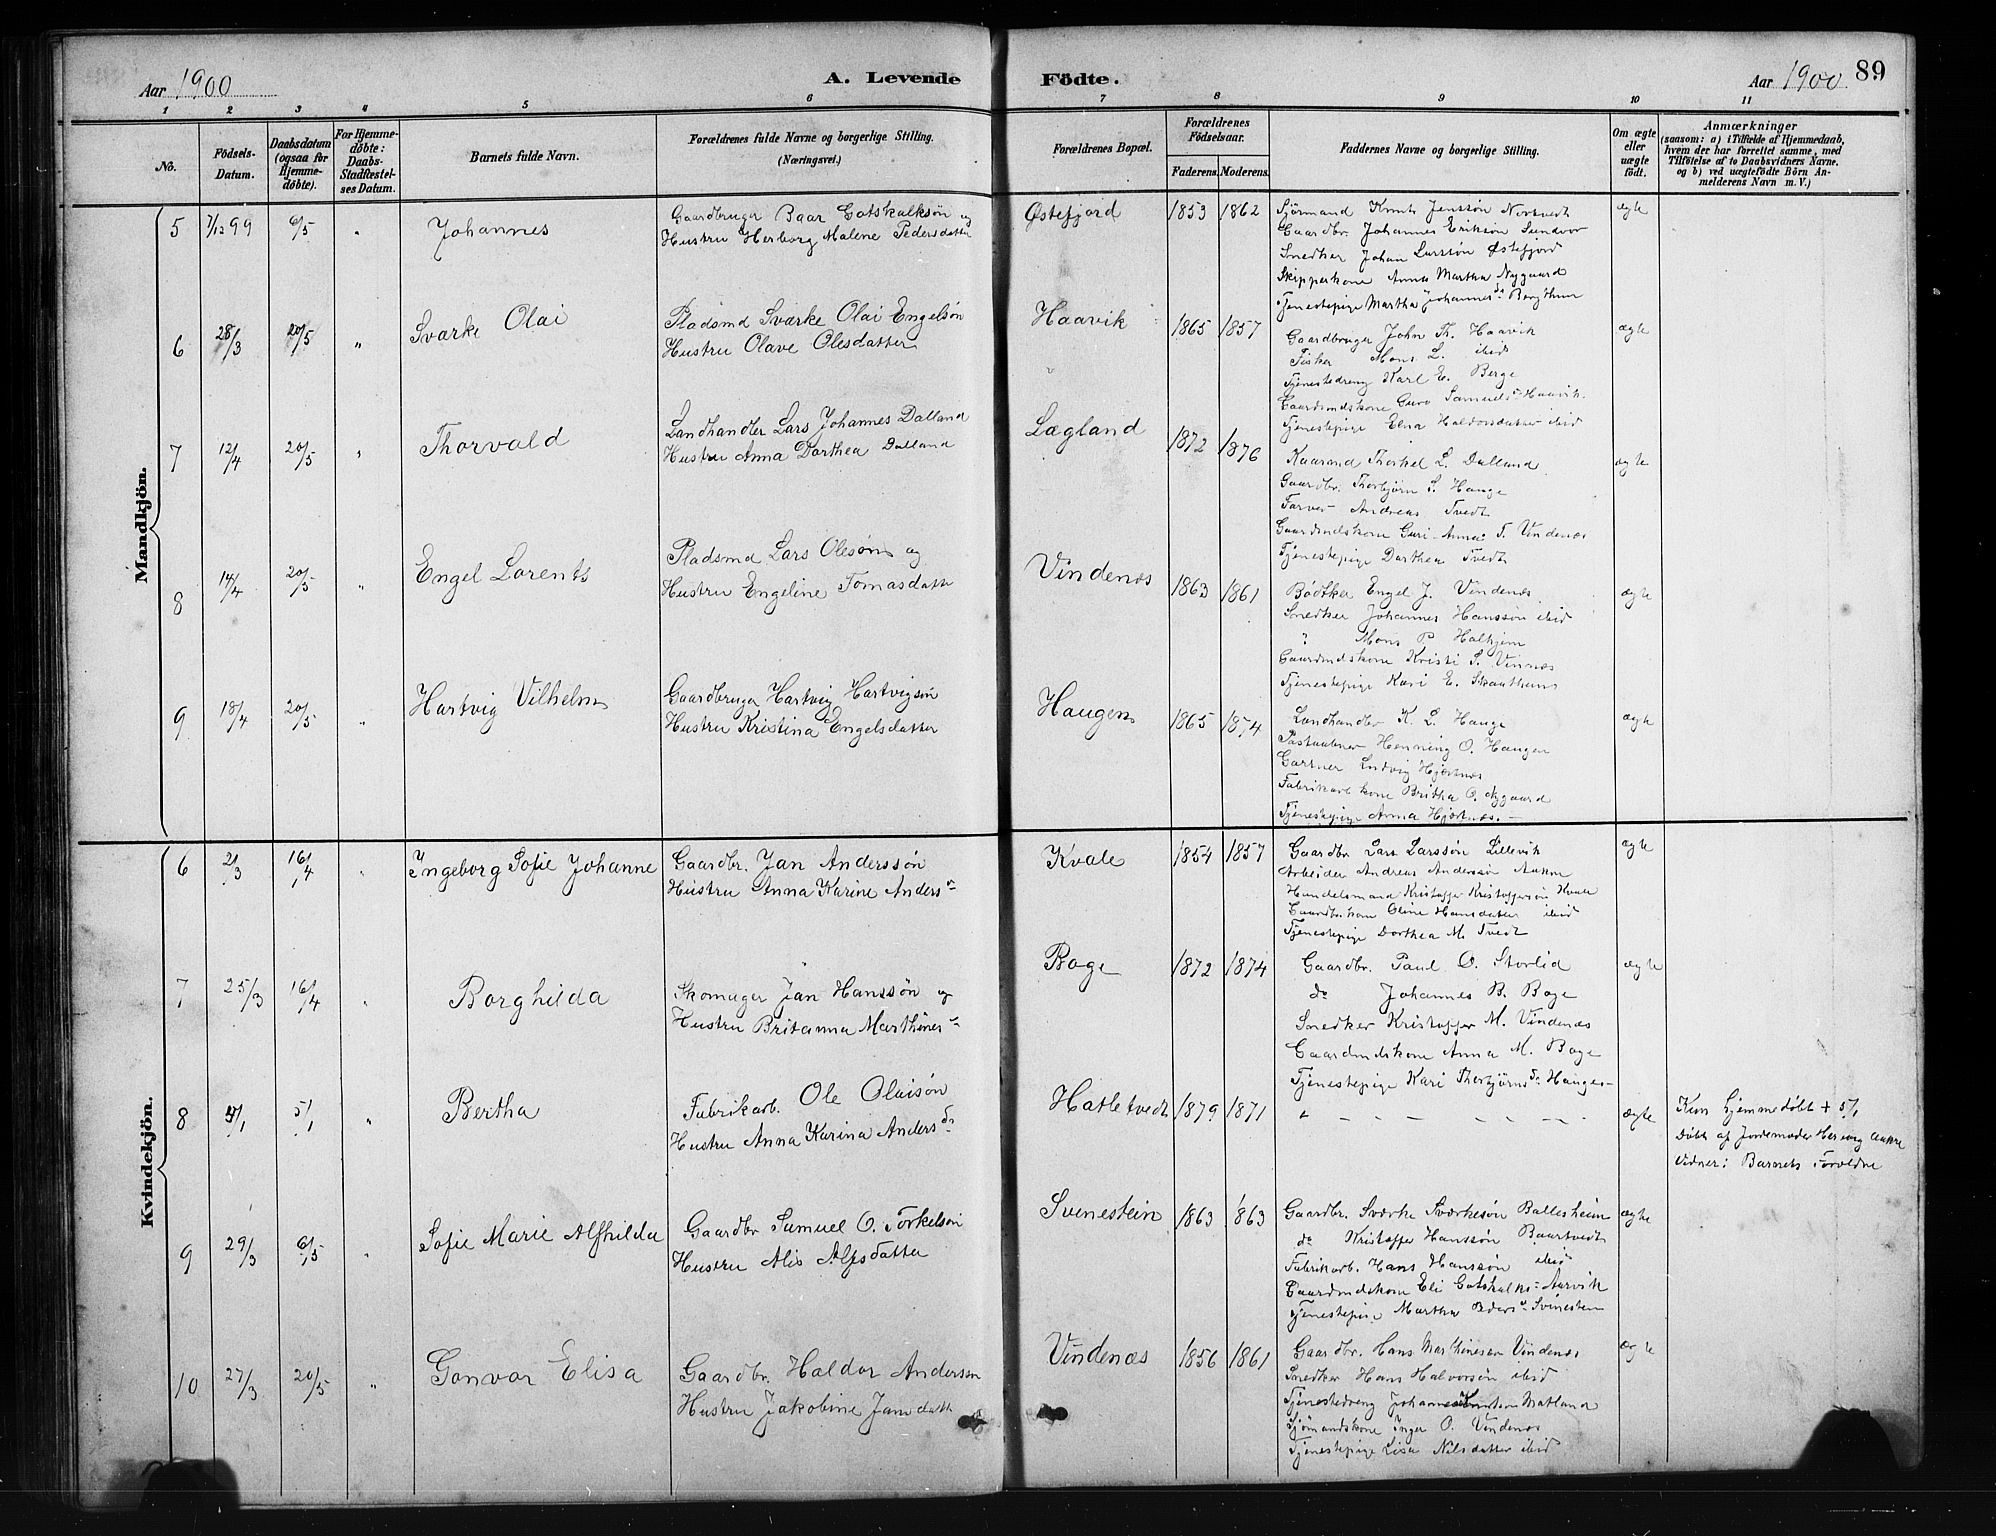 Aar 1900
A. Levende Födte.
Aar 1900. 89
1 2 3 4 5 6 7 8 9 10 11
No.
Födsels-Datum.
Daabsdatum (ogsaa før Hjemmedøbte).
For Hjemmedöbte: Daabs-Stadfæstelses Datum.
Barnets fulde Navn.
Forældrenes fulde Navne og borgerlige Stilling. (Næringsvei.)
Forældrenes Bopæl.
Forældrenes Födselsaar.
Faderens. Moderens.
Faddernes Navne og borgerlige Stilling.
Om ægte eller uægte født.
Anmærkninger
(saasom: a) i Tilfælde af Hjemmedaab, hvem der har forrettet samme, med Tilföielse af to Daabsvidners Navne. og b) ved uægtefödte Börn Anmelderens Navn m. V.)
Mandkjön.
5 7/12 99 6/5 " Johannes
Gaardbruger Baar Gotskalksøn og
Hustru Herborg Malene Pedersdatter
Østefjord 1853 1862
Sjömand Knut Jenssøn
Gaardbr. Johannes Erikson Sundvor
Snedker Johan Larssøn Østefjord
Skipperkone Anna Martha Nygaard
Tjenestepige Martha Johannesda
ægte
6 28/3 20/5 " Sværke Olai
Pladsmd Sværke Olai Engelsøn
Hustru Olave Olesdatter
Haavik 1865 1857
Gaardbruger John Th. Haavik
Fisker Mons L. ibid
Tjenestedreng Karl E. Berge
Gaardmdskone Guro Samuelsd Haavik.
Tjenestepige Elna Haldorsdatter ibid
ægte
7 12/4 20/5 " Thorvald
Landhandler Lars Johannes Dalland
Hustru Anna Dorthea Dalland
Lægland 1872 1876
Kaarmd Thorkel L. Dalland
Gaardbr. Thorbjørn S. Hauge
Farver Andreas Tvedt
Gaardmdskone Guri Anna T. Vindenæs
Tjenestepige Dorthea Tvedt
ægte
8 14/4 20/5 " Engel Lorents
Pladsmd Lars Olesøn og
Hustru Engeline Tomasdatter
Vindenæs 1863 1861
Bødtker Engel J. Vindenæs
Snedker Johannes Hanssøn ibid
" Mons P. Halhjem
Gaardmdskone Kristi S. Vinnæs
Tjenestepige Kari E.
ægte
9 18/4 20/5 " Hartvig Vilhelm
Gaardbruger Hartvig Hartvigsøn
Hustru Kristina Engelsdatter
Haugen 1865 1874
Landhandler K. L. Hauge
Postaabner Henning O. Haugen
Gartner Ludvig Hjertnæs
Fabrikarb kone Britha O. Nygaard
Tjenestepige Anna Hjertnæs.
ægte
Kvindekjön.
6 2/3 16/4 " Ingeborg Sofie Johanne
Gaardbr. Jan Anderssøn
Hustru Anna Karine Andersdr
Kvale 1854 1857
Gaardbr Lars Larssøn Lillevik
Arbeider Andreas Anderssøn
Handelsmand Kristoffer Kristoffersøn Kvale
Gaardbr.kone Oline Hansdatter ibid
Tjenestepige Dorthea M. Tvedt
ægte
7 25/3 16/4 " Borghilda
Skomager Jan Hanssøn og
Hustru Britanna Marthines
Boge 1872 1874
Gaardbr. Paul O. Storlid
do Johannes B. Boge
Snedker Kristoffer M. Vindenæs
Gaardmdskone Anna M. Boge
Tjenestepige Kari Thorbjørnsda Hauge
ægte
8 4/1 5/1 " Bertha
Fabrikarb. Ole Olaisøn
Hustru Anna Karina Andersda
Hatletvedt 1879 1871
" – – – – – –
ægte
Kun hjemmedøbt + 5/1
Døbt af Jordemoder Herborg
Vidner: Barnets Forældre
9 29/3 6/5 " Sofie Marie Alfhilda
Gaardbr Samuel O. Torkelsøn
Hustru Alis Alfsdatter
Svenestein 1863 1863
Gaardbr. Sværke Sværkesøn Ballesheim
do Kristoffer Hanssøn Baartvedt
Fabrikarb. Hans Hanssøn ibid
Gaardmdskone Eli Gotskalks Aarvik
Tjenestepige Martha Svinestein
ægte
10 27/3 20/5 " Gonvor Elisa
Gaardbr. Haldor Anderssen
Hustru Jakobine Jansdatter
Vindenæs 1856 1861
Gaardbr. Hans Marthinesen Vindenæs
Snedker Hans Halvorsøn ibid
Tjenestedreng Johannes Matland
Sjømandskone Inger O. Vindenæs
Tjenestepige Lisa Nilsdatter ibid
ægte